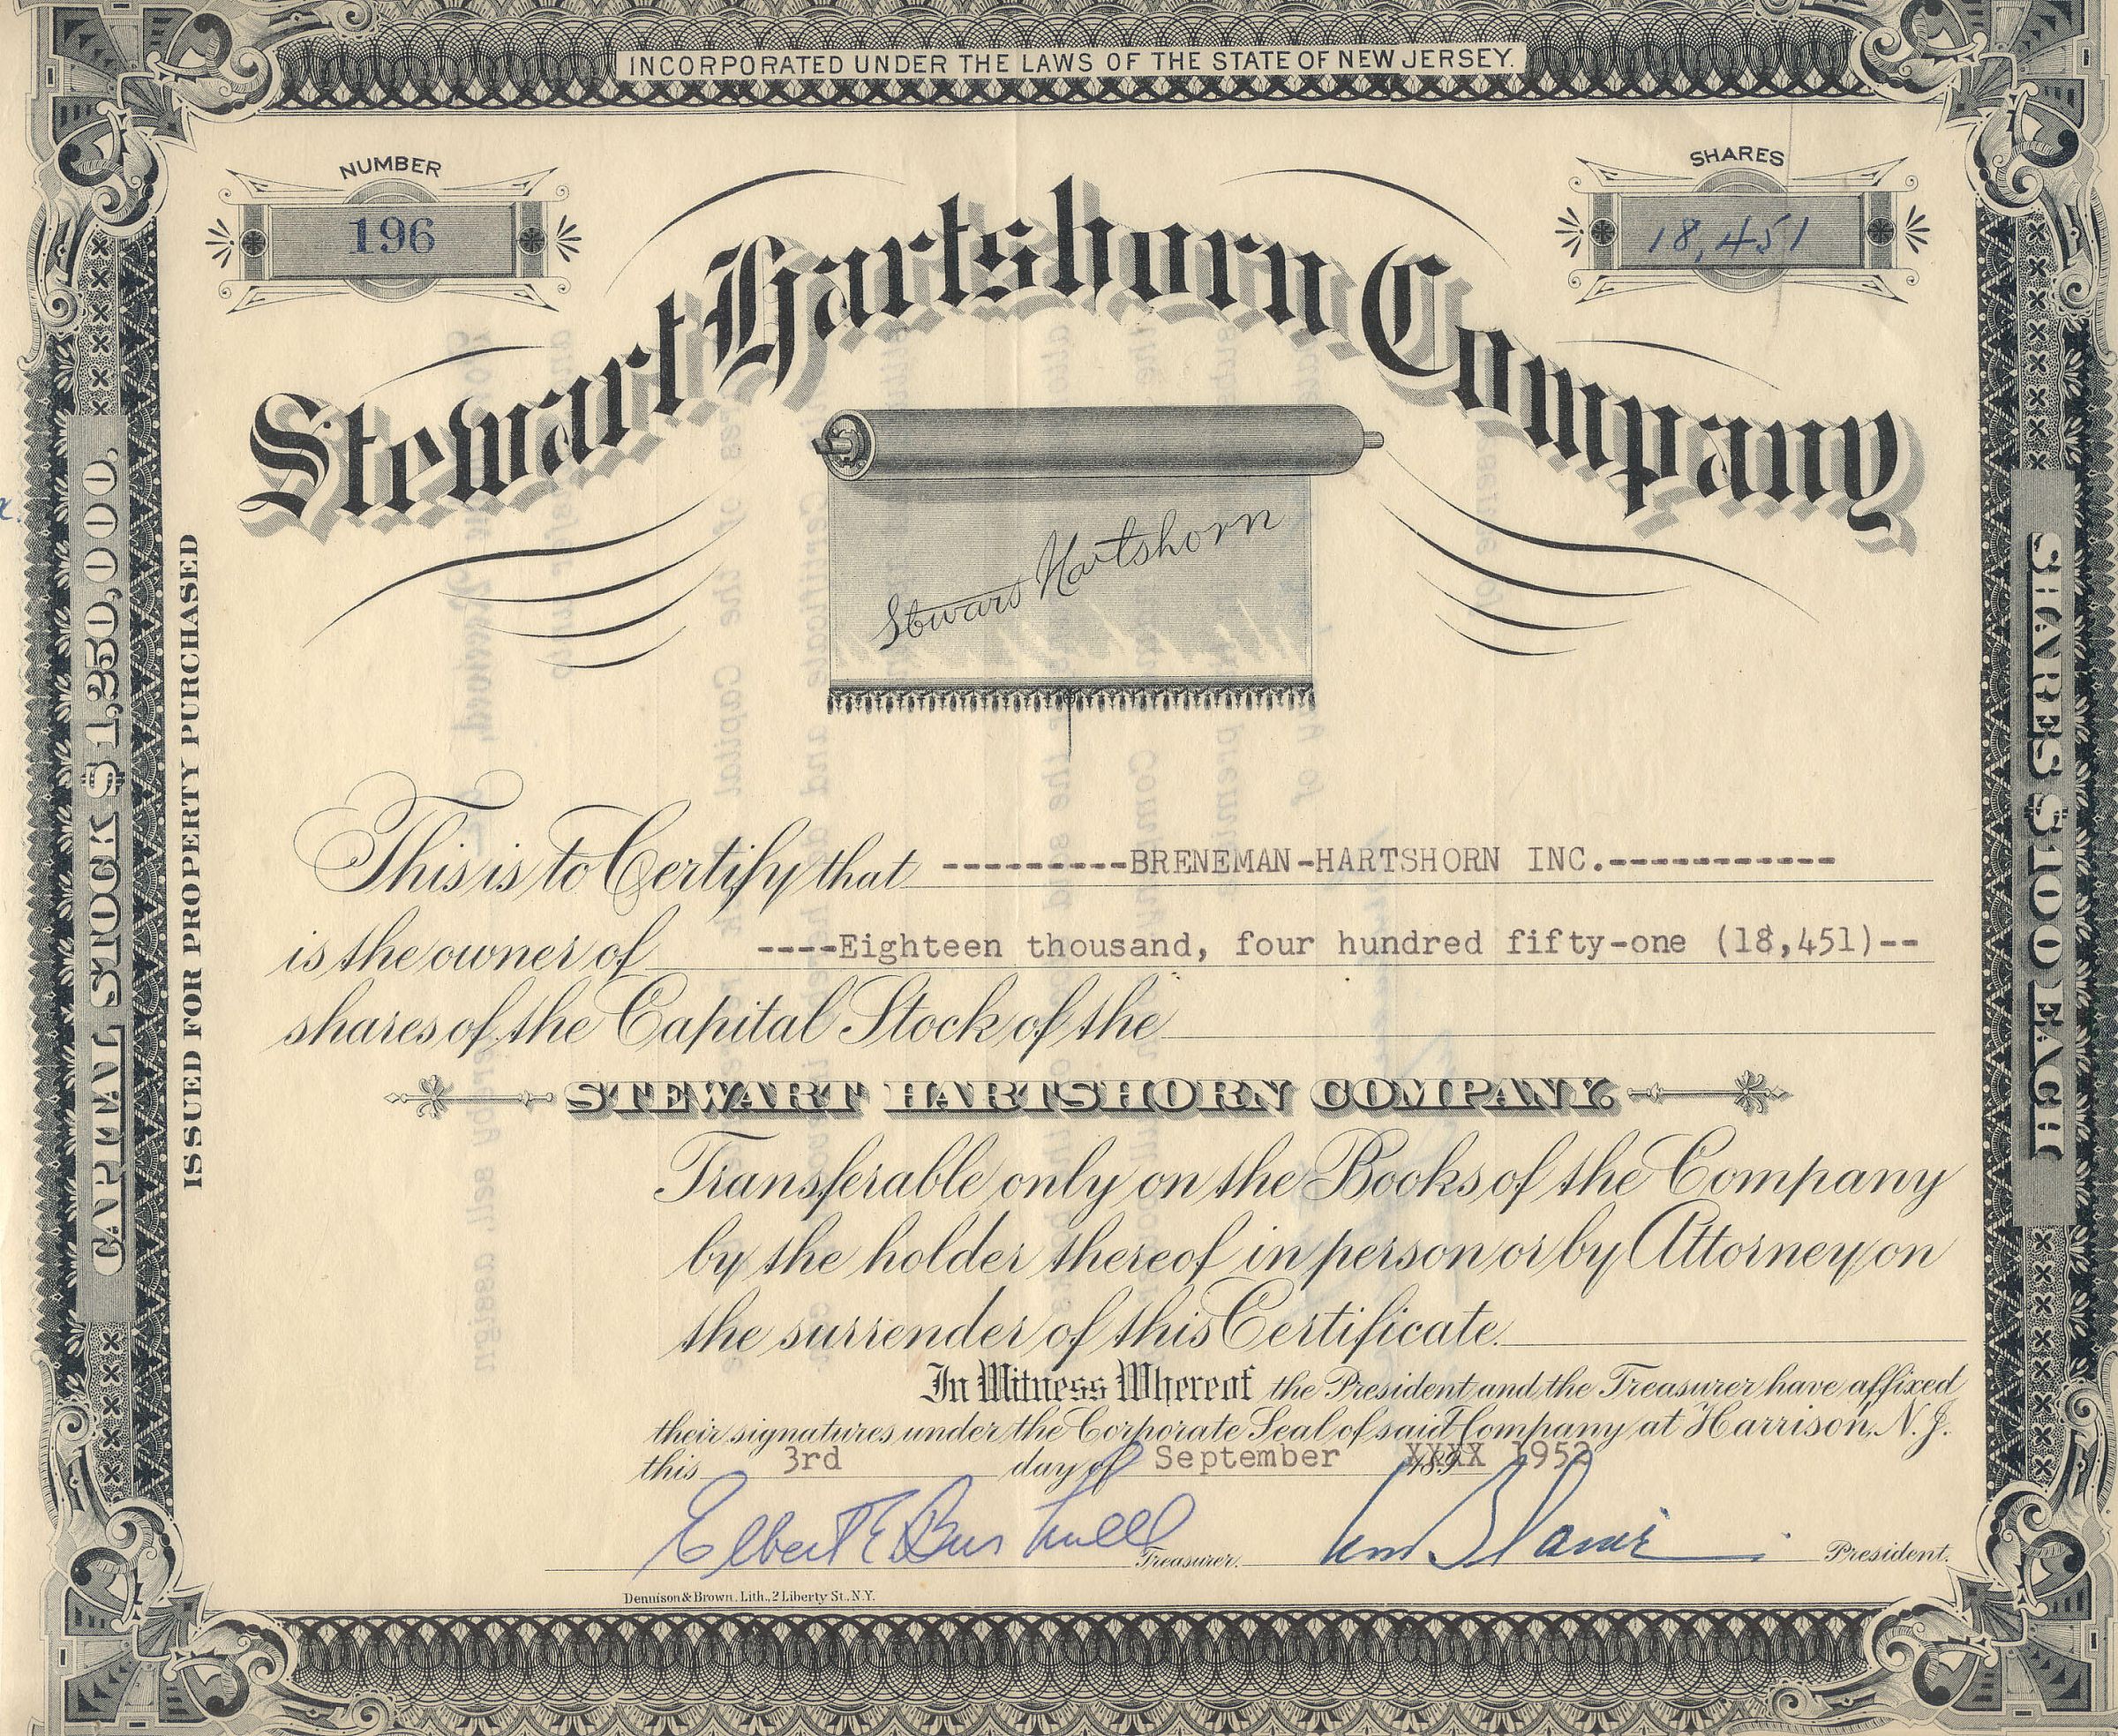 INCORPORATED UNDER THE LAWS OF THE STATE OF NEW JERSEY.
NUMBER
196
SHARES
18,451
Stewart Hartshorn Company
Stewart Hartshorn
CAPITAL STOCK $1,250,000.
ISSUED FOR PROPERTY PURCHASED
SHARES $100 EACH
This is to Certify that ---------BRENEMAN-HARTSHORN INC.------------
is the owner of ----Eighteen thousand, four hundred fifty-one (18,451)--
shares of the Capital Stock of the
STEWART HARTSHORN COMPANY.
Transferable only on the Books of the Company
by the holder thereof in person or by Attorney on
the surrender of this Certificate.
In Witness Whereof the President and the Treasurer have affixed
their signatures under the Corporate Seal of said Company at Harrison, N.J.
this 3rd day of September 189 XXXX 1952
Elbert E Bushnell Treasurer. President.
Dennison & Brown, Lith., 2 Liberty St., N.Y.